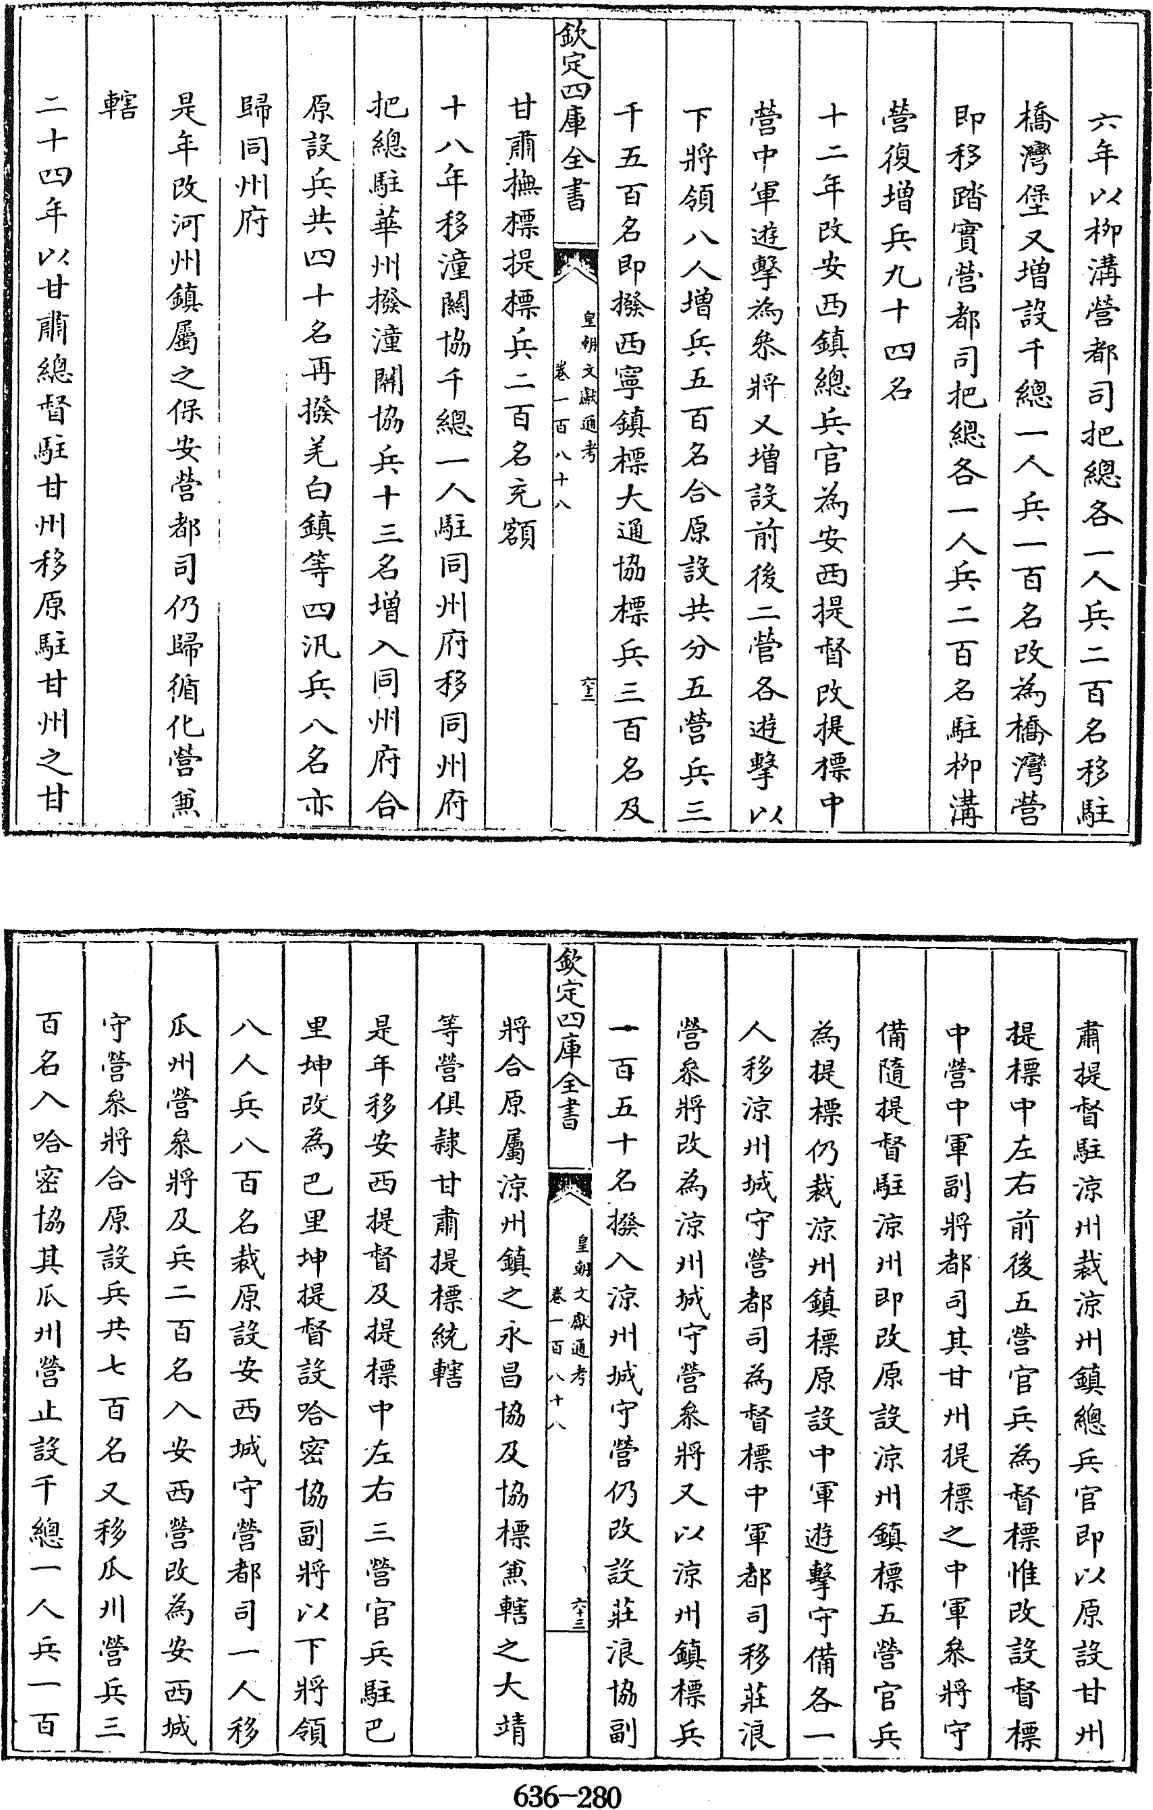 六年以柳溝營都司把總各一人兵二百名移駐
橋灣堡又增設千總一人兵一百名改為橋灣營
即移踏實營都司把總各一人兵二百名駐柳溝
營復增兵九十四名
十二年改安西鎮總兵官為安西提督改提標中
營中軍遊擊為叅將又增設前後二營各遊擊以
下將領八人增兵五百名合原設共分五營兵三
千五百名即撥西寧鎮標大通協標兵三百名及
欽定四庫全書
皇朝文獻通考
卷一百八十八
六十二
甘肅撫標提標兵二百名充額
十八年移潼關協千總一人駐同州府移同州府
把總駐華州撥潼關協兵十三名增入同州府合
原設兵共四十名再撥羌白鎮等四汛兵八名亦
歸同州府
是年改河州鎮屬之保安營都司仍歸循化營兼
轄
二十四年以甘肅總督駐甘州移原駐甘州之甘
肅提督駐涼州裁涼州鎮總兵官即以原設甘州
提標中左右前後五營官兵為督標惟改設督標
中營中軍副將都司其甘州提標之中軍叅將守
備隨提督駐涼州即改原設涼州鎮標五營官兵
為提標仍裁涼州鎮標原設中軍遊擊守備各一
人移涼州城守營都司為督標中軍都司移莊浪
營叅將改為涼州城守營叅將又以涼州鎮標兵
一百五十名撥入涼州城守營仍改設莊浪協副
欽定四庫全書
皇朝文獻通考
卷一百八十八
六十三
將合原屬涼州鎮之永昌協及協標兼轄之大靖
等營俱隸甘肅提標統轄
是年移安西提督及提標中左右三營官兵駐巴
里坤改為巴里坤提督設哈密協副將以下將領
八人兵八百名裁原設安西城守營都司一人移
瓜州營叅將及兵二百名入安西營改為安西城
守營叅將合原設兵共七百名又移瓜州營兵三
百名入哈密協其瓜州營止設千總一人兵一百
636-280